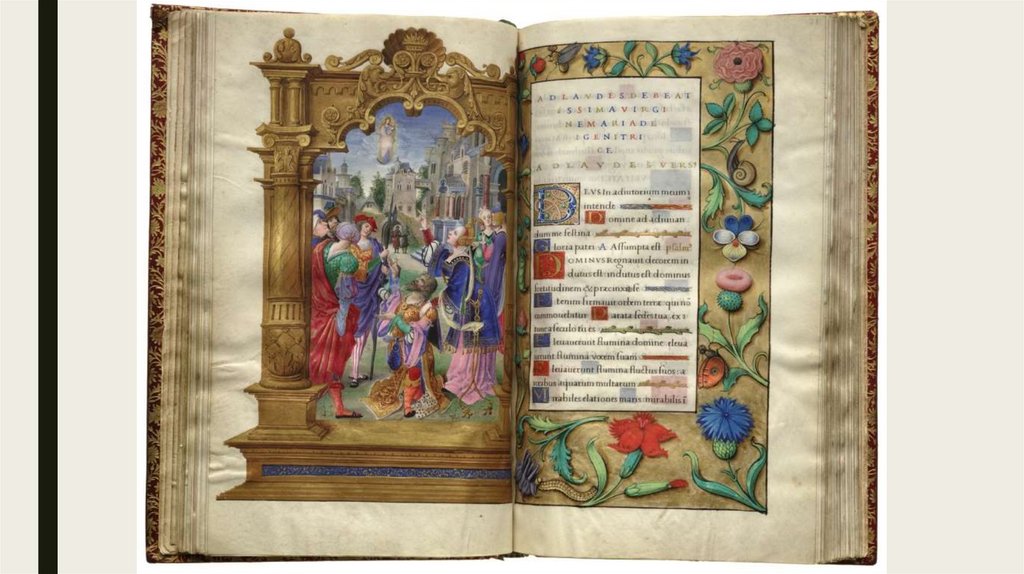 AD LAVDES DE BEAT
ISSIMA VIRGI
NE MARIA DE
I GENITRI
CE
AD LAVDES VERS9
DEVS In adiutorium meum i
intende
Domine ad adiuuan
dum me festina
Gloria patri A Assumpta est psalm9
DOMINVS Regnauit decorem in
dutus est: indutus est dominus
fortitudinem & præcinxit se
Etenim firmauit orbem terræ qui nō
commouebitur Parata sedes tua, ex
tunc a seculo tu es
Eleuauerunt flumina domine eleua
uerunt flumina vocem suam
Eleuauerunt flumina fluctus suos: a
vocibus aquarum multarum
Mirabiles elationes maris: mirabilis i